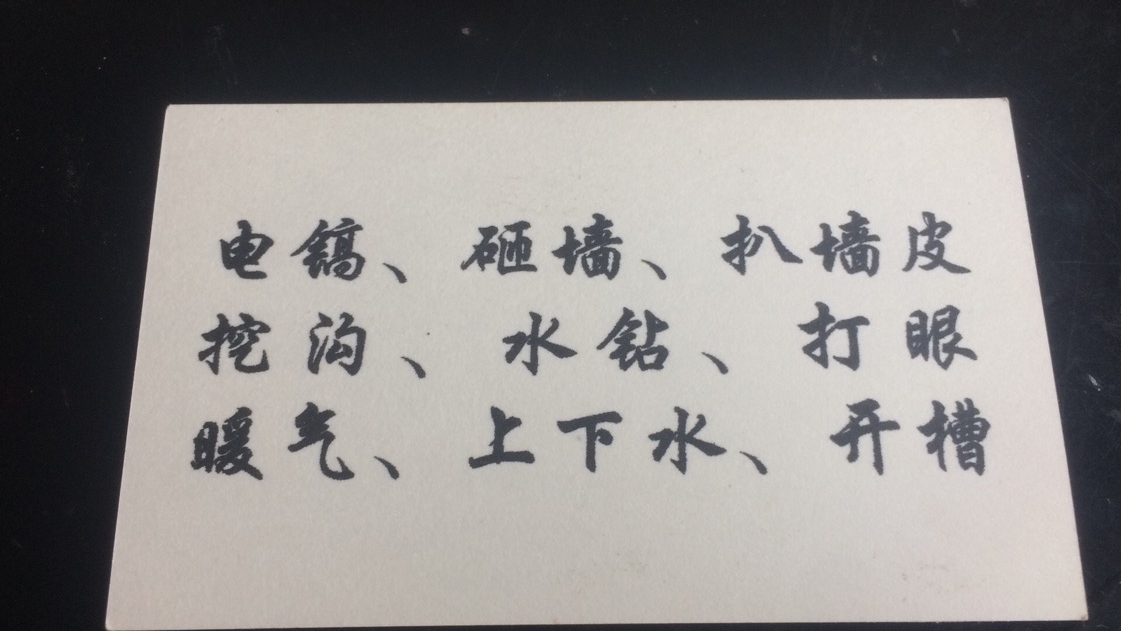 电镐、砸墙、扒墙皮
挖沟、水钻、打眼
暖气、上下水、开槽